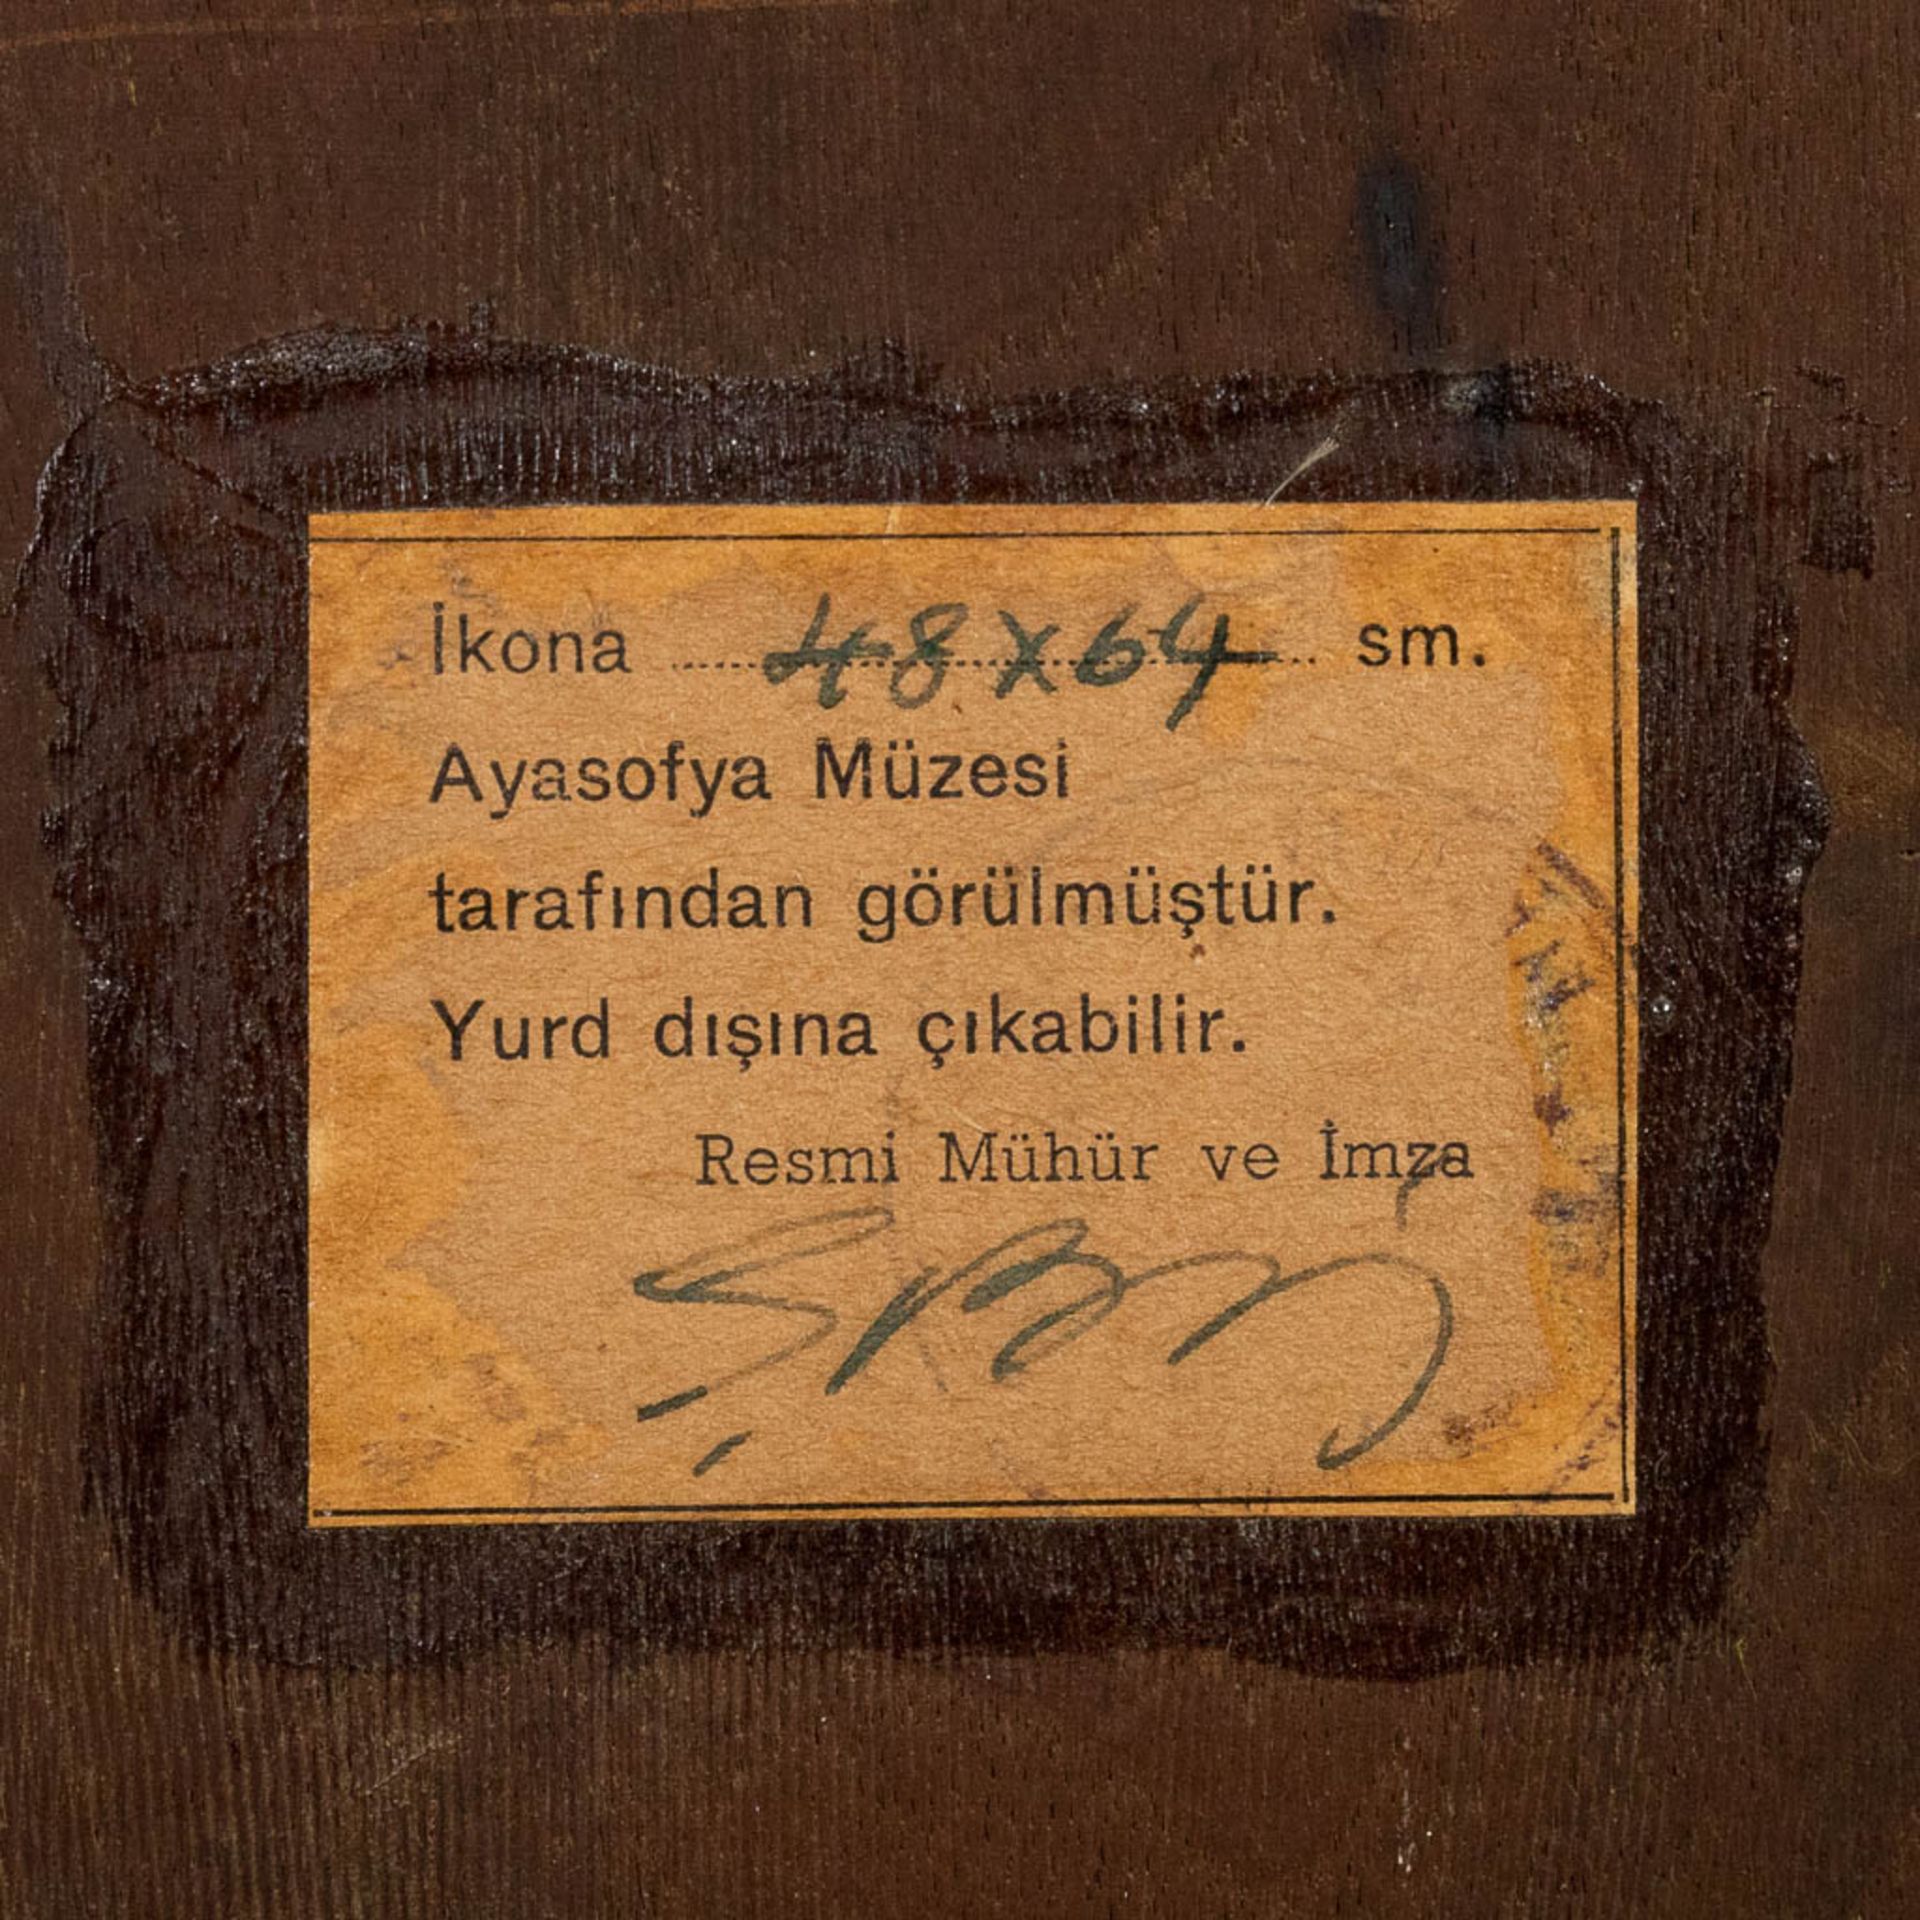 İkona 48x64 sm.
Ayasofya Müzesi
tarafından görülmüştür.
Yurd dışına çıkabilir.
Resmi Mühür ve İmza